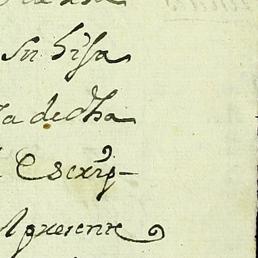 Su hija
a de dha
Escrip
Apresente